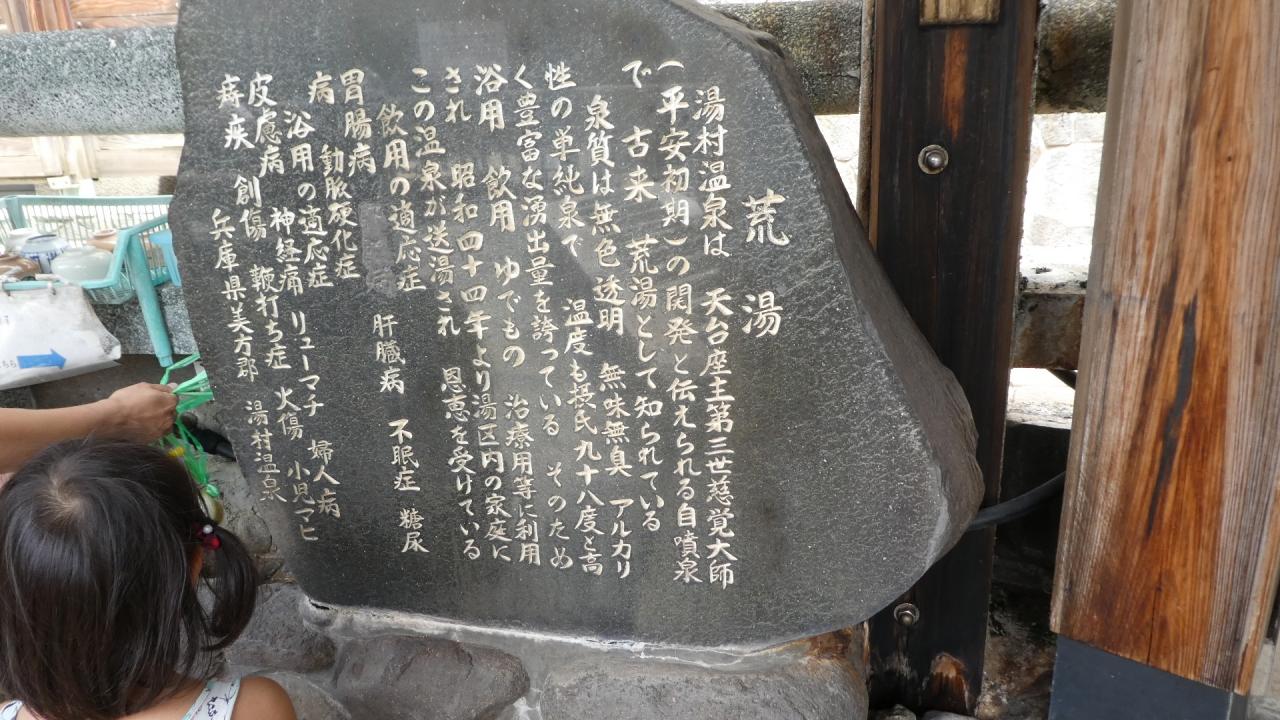 荒湯
湯村温泉は 天台座主第三世慈覚大師
(平安初期)の関発と伝えられる自噴泉
で 古来 荒湯として知られている
泉質は無色透明 無味無臭 アルカリ
性の単純泉で 温度も摂氏九十八度と高
く豊富な湧出量を誇っている そのため
浴用 飲用 ゆでもの 治療用等に利用
され 昭和四十四年より湯区内の家庭に
この温泉が送湯され 恩恵を受けている
飲用の適応症
胃腸病 肝臓病 不眠症 糖尿
病 動脈硬化症
浴用の適応症
皮膚病 神経痛 リューマチ 婦人病
痔疾 創傷 鞭打ち症 火傷 小児マヒ
兵庫県美方郡 湯村温泉